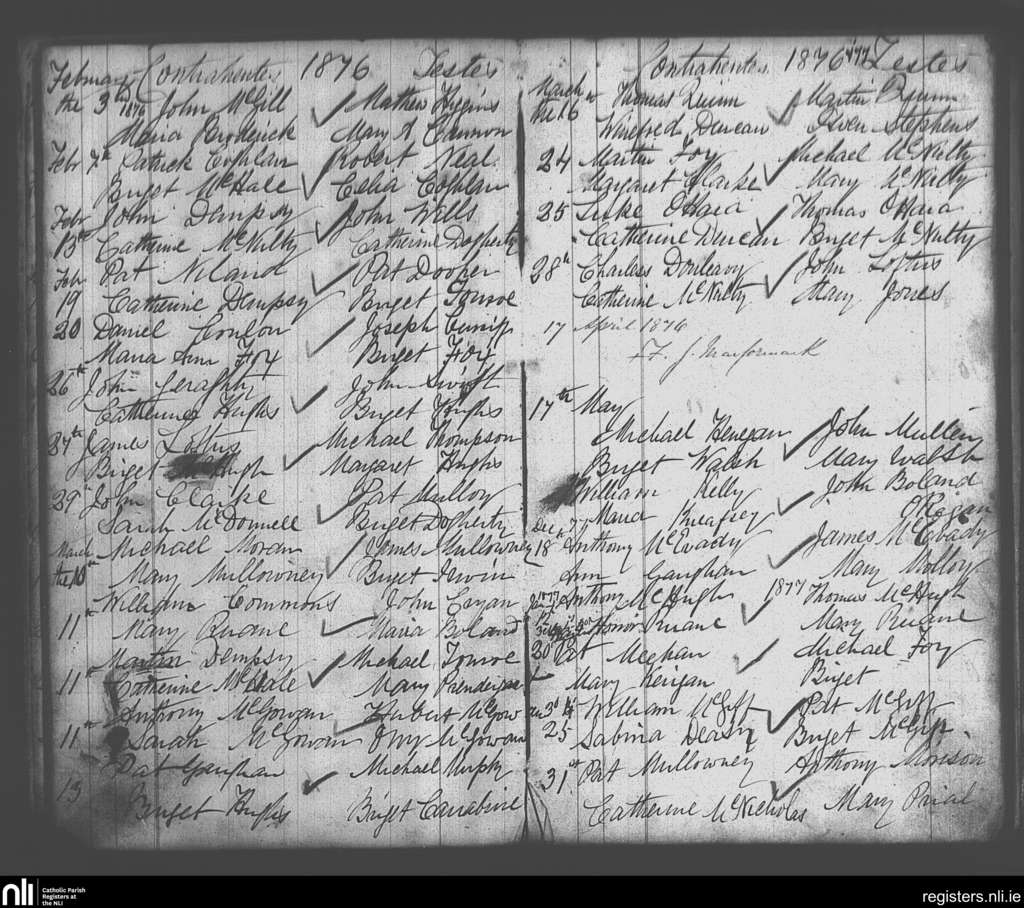 February Contrahentes 1876 Testes
the 3rd 1876 John McGill Mathew Higgins
Maria Broderick Mary A Cannon
Febr 7th Patrick Coghlan Robert Neal
Briget McHale Celia Coghlan
Febr John Dempsy John Wills
13th Catherine McNulty Catherine Dogherty
Febr Pat Niland Pat Dooher
19 Catherine Dempsy Briget
20 Daniel Conlon Joseph
Maria Ann Foy Briget Foy
26th John Geraghty John Swift
Catherine Hughs Briget Hughs
27th James Loftus Michael Thompson
Briget Hugh Margaret Hughs
29th John Clarke Pat Mulloy
Sarah McDonnell Briget Dogherty
March Michael Moran James Mullowney
the 10th Mary Mullowney Briget Irwin
William Commons John
11th Mary Ruane Maria Boland
Martin Dempsy Michael
11th Catherine McHale Mary
Anthony McGowan Hubert McGow
11th Sarah McGowan McGowan
Pat Gaughan Michael Murphy
13 Briget Hughs Briget Carrabine
Contrahentes 1876 '77 Testes
March Thomas Quinn Martin Quinn
the 16th Winefred Duncan Stephens
24 Martin Foy Michael McNulty
Margaret Clarke Mary McNulty
25 Luke OHara Thomas OHara
Catherine Duncan Briget McNulty
28th Charles Donleavy John Loftus
Catherine McNulty Mary Jones
17 April 1876
+F. J. MacCormack
17th May
Michael Henegan John Mullen
Briget Walsh Mary Walsh
William Kelly John Boland
Maria ORegan
Decr
18th Anthony McEvady James McEvady
Ann Gaughan Mary Molloy
1877 Anthony McHugh 1877 Thomas McHugh
Honor Ruane Mary Ruane
20 Pat Meehan Michael Foy
Mary Kerigan Briget
William McGiff Pat McGiff
25 Sabina Deasy Briget McGiff
31st Pat Mullowney Anthony Morison
Catherine McNicholas Mary Prial
nli Catholic Parish
Registers at
the NLI
registers.nli.ie